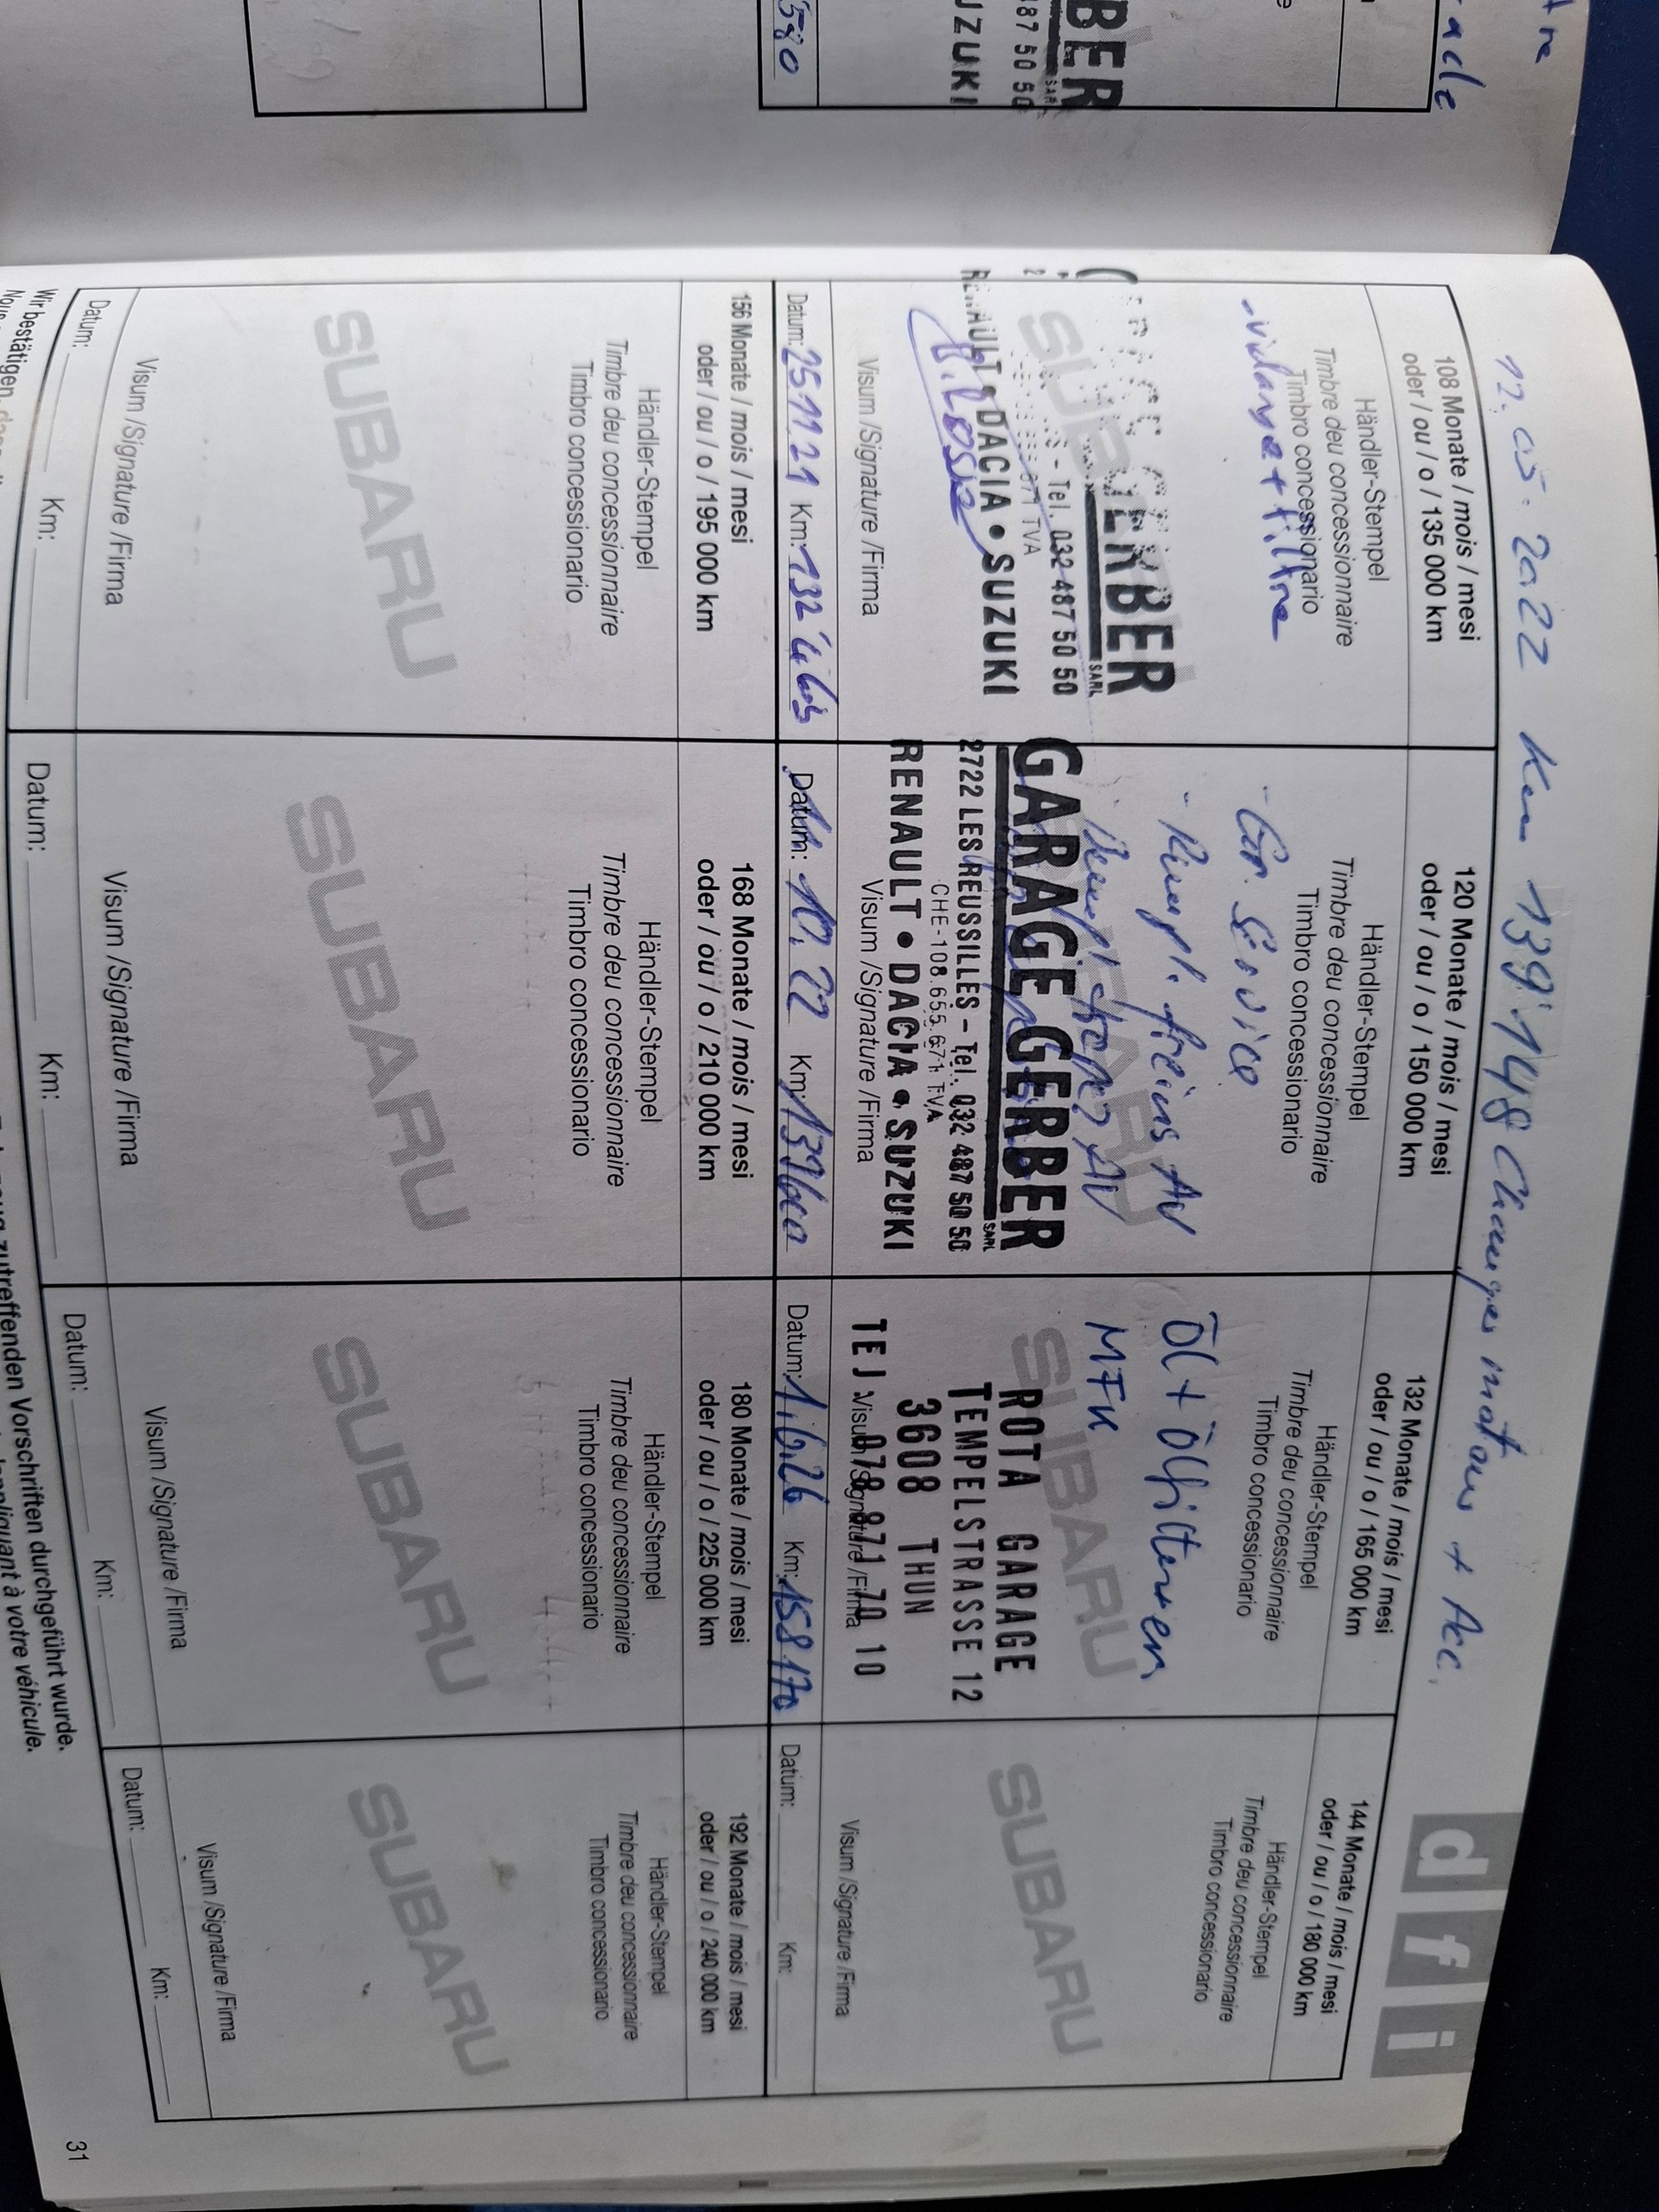 tre
ade
BER
SARL
487 50 50
UZUKI
580
12. 05. 2022 Km 139'148 Changer moteur + Acc.
d f i
108 Monate / mois / mesi
oder / ou / o / 135 000 km
Händler-Stempel
Timbre deu concessionnaire
Timbro concessionario
- vidange + filtre
SUBARU
GERBER
SARL
- Tel. 032 487 50 50
TVA
RENAULT • DACIA • SUZUKI
Visum /Signature /Firma
Datum: 25.11.21 Km: 132'463
120 Monate / mois / mesi
oder / ou / o / 150 000 km
Händler-Stempel
Timbre deu concessionnaire
Timbro concessionario
- Gr. Service
- Rempl. freins AV
- Rempl. AV
SUBARU
GARAGE GERBER
SARL
2722 LES REUSSILLES – Tel. 032 487 50 50
CHE-108.655.671 TVA
RENAULT • DACIA • SUZUKI
Visum /Signature /Firma
Datum: 10.22 Km: 139600
132 Monate / mois / mesi
oder / ou / o / 165 000 km
Händler-Stempel
Timbre deu concessionnaire
Timbro concessionario
Öl + Ölfilter ern
MFK
SUBARU
ROTA GARAGE
TEMPELSTRASSE 12
3608 THUN
TEL. 078 971 70 10
Visum /Signature /Firma
Datum: 1.6.26 Km: 158170
144 Monate / mois / mesi
oder / ou / o / 180 000 km
Händler-Stempel
Timbre deu concessionnaire
Timbro concessionario
SUBARU
Visum /Signature /Firma
Datum: Km:
156 Monate / mois / mesi
oder / ou / o / 195 000 km
Händler-Stempel
Timbre deu concessionnaire
Timbro concessionario
SUBARU
Visum /Signature /Firma
Datum: Km:
168 Monate / mois / mesi
oder / ou / o / 210 000 km
Händler-Stempel
Timbre deu concessionnaire
Timbro concessionario
SUBARU
Visum /Signature /Firma
Datum: Km:
180 Monate / mois / mesi
oder / ou / o / 225 000 km
Händler-Stempel
Timbre deu concessionnaire
Timbro concessionario
SUBARU
Visum /Signature /Firma
Datum: Km:
192 Monate / mois / mesi
oder / ou / o / 240 000 km
Händler-Stempel
Timbre deu concessionnaire
Timbro concessionario
SUBARU
Visum /Signature /Firma
Datum: Km:
Wir bestätigen, zutreffenden Vorschriften durchgeführt wurde.
Nous à votre véhicule.
31